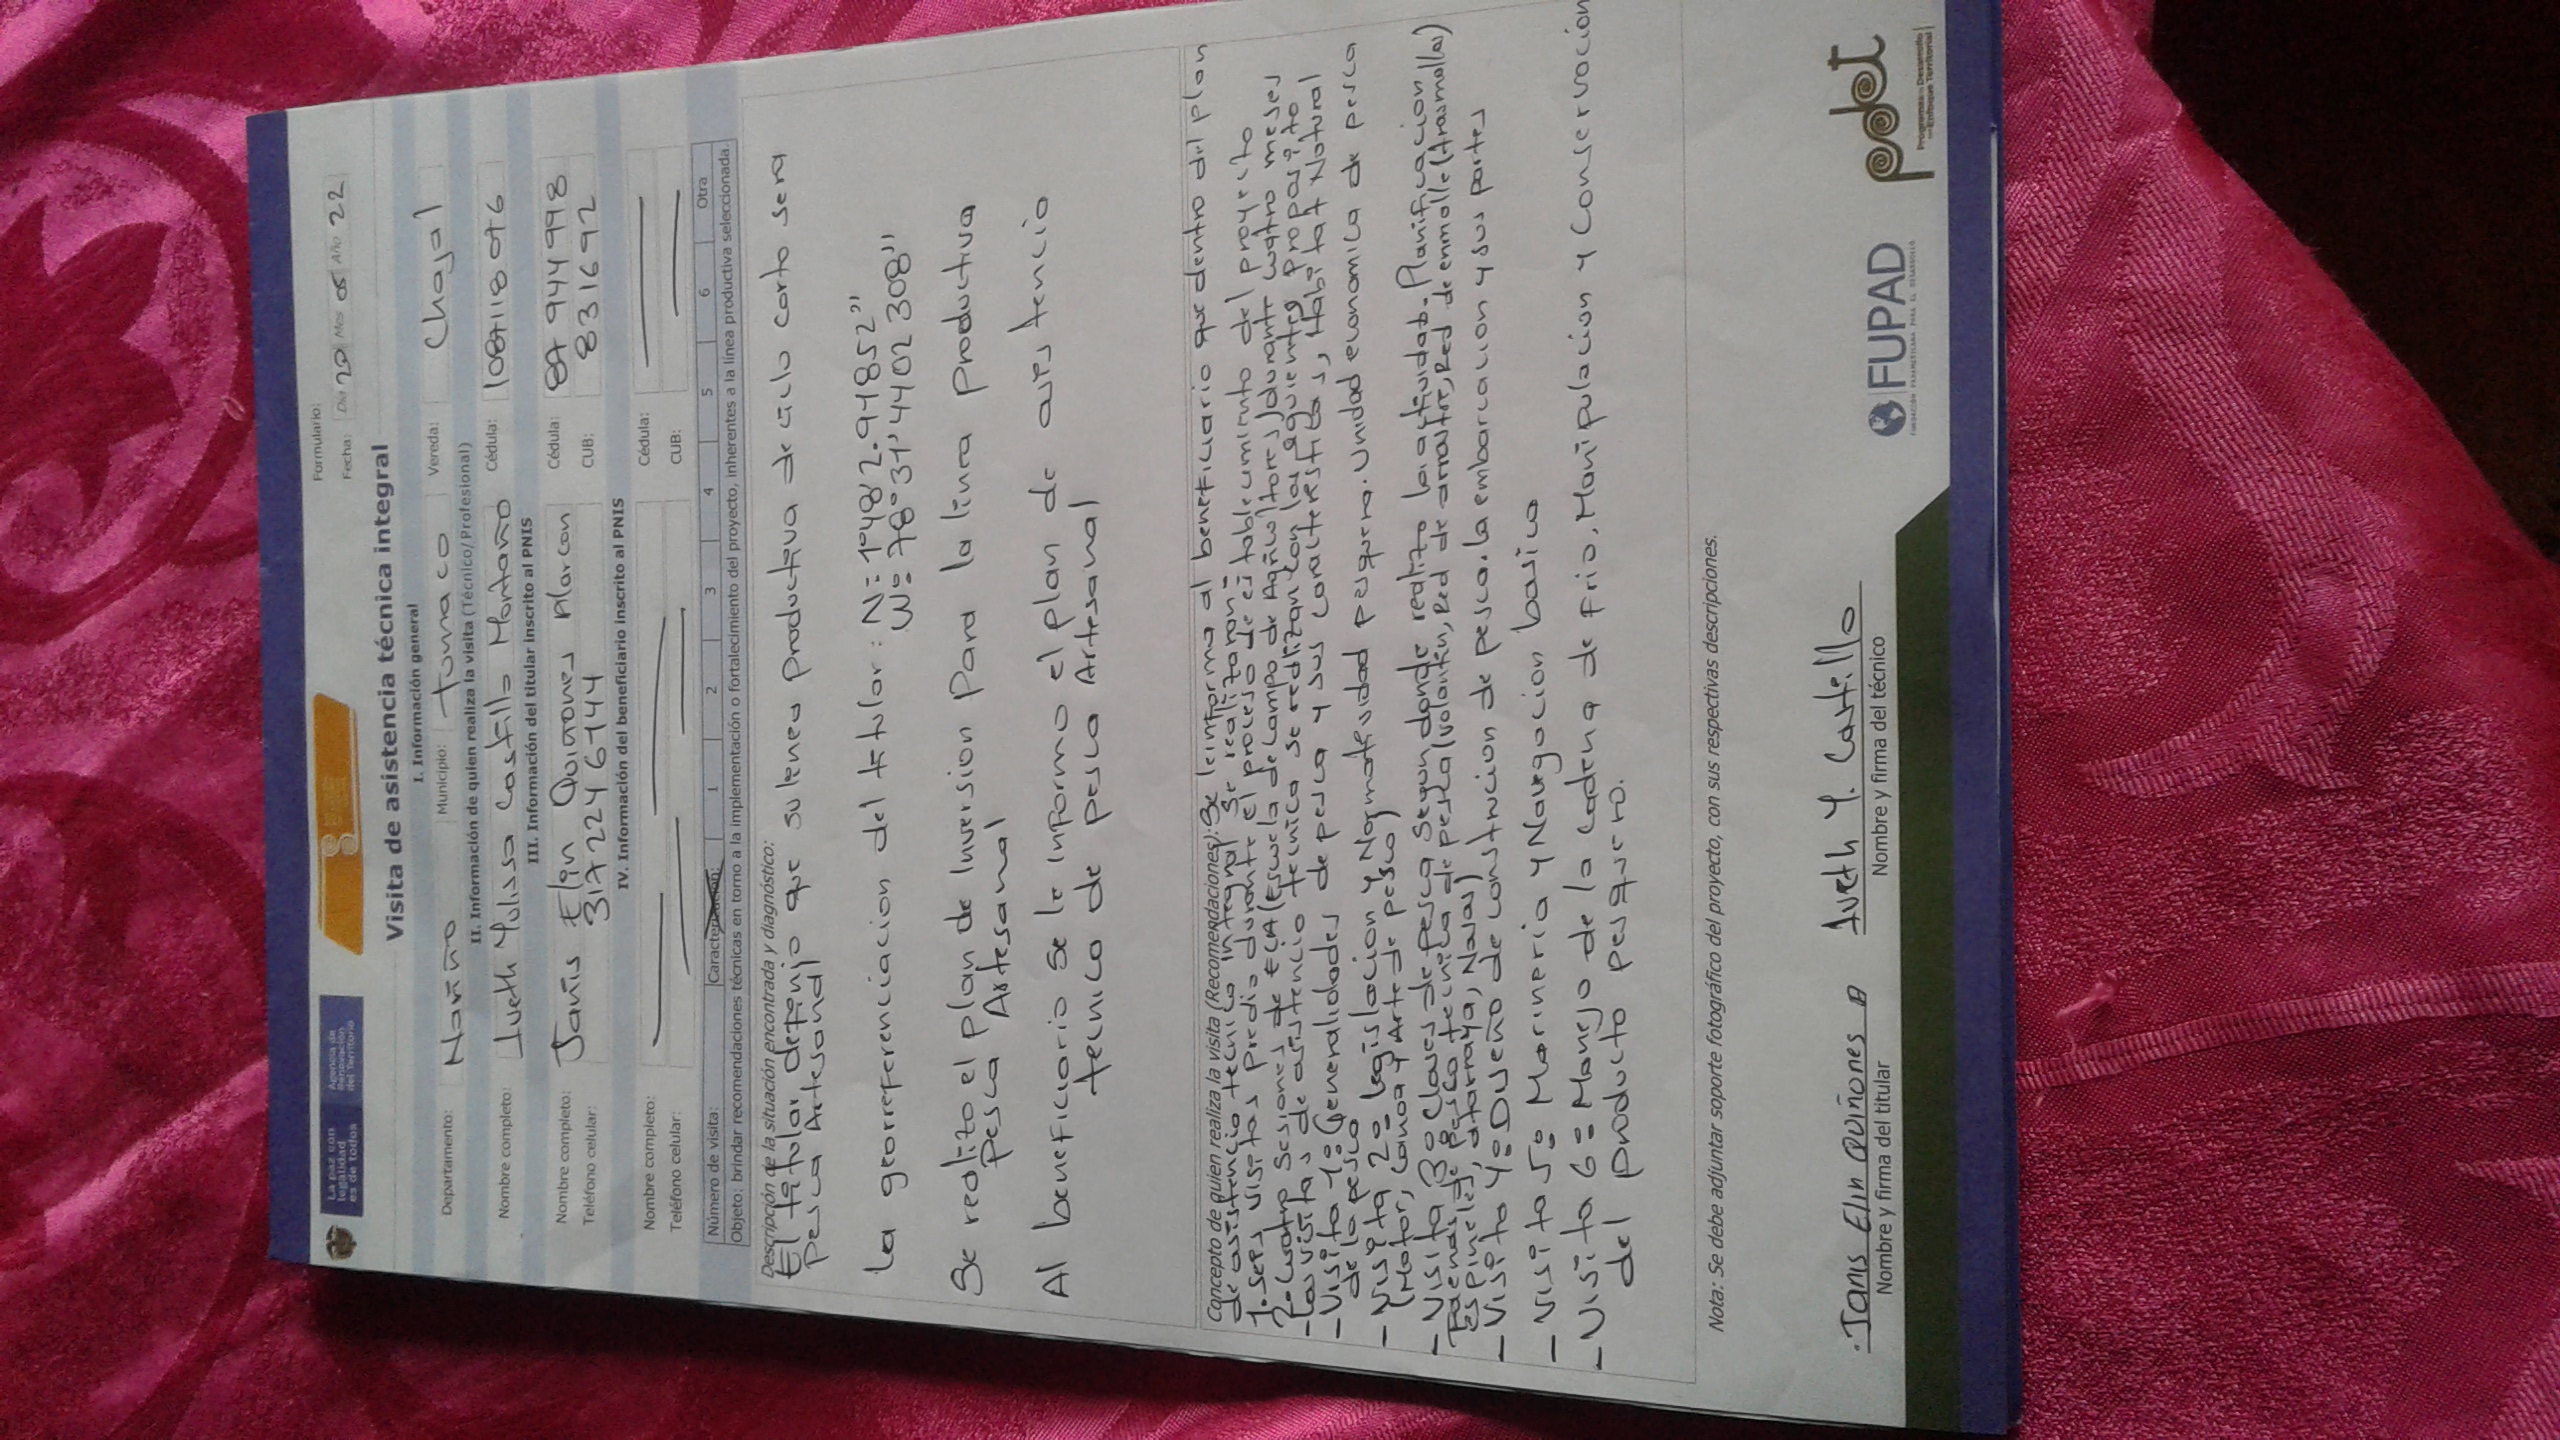 La paz con
legalidad
es de todos
Agencia de
Renovación
del Territorio
Formulario:
Fecha: Día 20 Mes 05 Año 22
Visita de asistencia técnica integral
I. Información general
Departamento: Nariño Municipio: tumaco Vereda: Chajal
II. Información de quien realiza la visita (Técnico/Profesional)
Nombre completo: Iveth Yulissa Castillo Montaño Cédula: 1087118076
III. Información del titular inscrito al PNIS
Nombre completo: Janis Elin Quiñones Alarcon Cédula: 87 944 998
Teléfono celular: 3172246744 CUB: 831692
IV. Información del beneficiario inscrito al PNIS
Nombre completo: Cédula:
Teléfono celular: CUB:
Número de visita: Caracterización: 1 2 3 4 5 6 Otra
Objeto: brindar recomendaciones técnicas en torno a la implementación o fortalecimiento del proyecto, inherentes a la línea productiva seleccionada.
Descripción de la situación encontrada y diagnóstico:
El titular definio que su linea productiva de ciclo corto sera
Pesca Artesanal
La georreferenciacion del titular: N: 1°48'2.94852"
W: 78°31'4402308"
Se realito el plan de Inversion Para la linea productiva
Pesca Artesanal
Al beneficiario se le Informo el plan de asistencia
tecnica de pesca Artesanal
Concepto de quien realiza la visita (Recomendaciones): Se le informa al beneficiario que dentro del plan
de asistencia tecnica integral Se realizaran:
1. Seis visitas Predio durante el proceso de establecimiento del proyecto
2. Cuatro Sesiones de ECA (Escuela de Campo de Agricultores) durante cuatro meses
- Las visitas de asistencia tecnica se realizan con los siguientes proposito
- Visita 1: Generalidades de pesca y sus caracteresticas, Habitat Natural
de la pesca
- Visita 2: Legislacion y Normatividad pesquera. Unidad economica de pesca
(Motor, Canoa y Arte de pesca)
- Visita 3: Clases de pesca Segun donde realito la actividad. Planificacion
Faenas de Pesca tecnica de pesca (volantin, Red de arrastre, Red de enmalle (trasmalla)
Espineles, atarraya, Nasas)
- Visita 4: Diseño de construccion de pesca. la embarcacion y sus partes
- Visita 5: Marineria y Navegacion basica
- Visita 6: Manejo de la Cadena de Frio, Manipulacion y Conservacion
del producto pesquero.
Nota: Se debe adjuntar soporte fotográfico del proyecto, con sus respectivas descripciones.
Janis Elin Quiñones A
Nombre y firma del titular
Iveth Y. Castillo
Nombre y firma del técnico
FUPAD
FUNDACIÓN PANAMERICANA PARA EL DESARROLLO
pdet
Programas de Desarrollo
con Enfoque Territorial